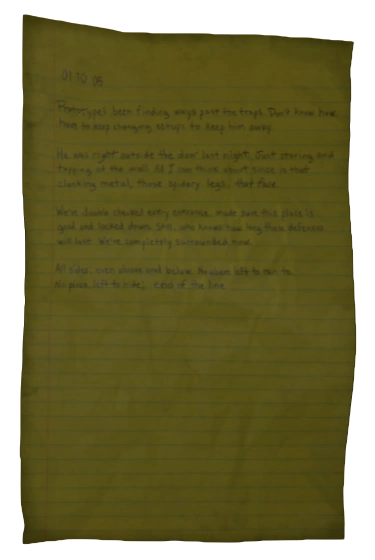 01.10.05
Prototype's been finding ways past the traps. Don't know how.
Have to keep changing setups to keep him away.
He was right outside the door last night. Just staring and
tapping at the wall. All I can think about noise is that
clacking metal, those spidery legs. that face.
We've double checked every entrance, made sure this place is
good and locked down. Still, who knows how long these defenses
will last. We're completely surrounded now.
All sides, even above and below. Nowhere left to run to.
No place left to hide. end of the line.